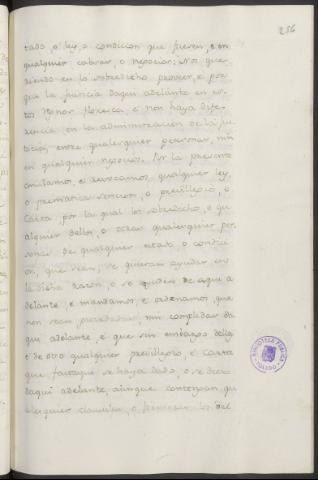 256
tado, o ley, o condicion que fueren, e en
qualquier cabsar, o negocios: Nos que-
riendo en lo sobredicho proveer, e por
que la justicia daqui adelante en es-
tos Reinos florezca, e non haya dife-
rencia en la administracion de la jus-
ticia, entre qualesquier personas, nin
en qualquier negocios. Por la presente
casamos, e revocamos qualquier ley,
o prematica sencion, o previllegio, o
Carta por la qual los sobredichos, o qu
alquier dellos, o otras qualesquier per
sonas de qualquier estado, o condici
on, que sean, se quieran ayudar en
la dicha razon, o se ayuden de aqui a
delante, e mandamos, e ordenamos, que
non sean guardadas, nin cumplidas da
qui adelante, e que sin embargo dellas
e de otro qualquier previllegio, e Carta
que fastaqui se haya dado, o se diere
daqui adelante, aunque contengan qu
alesquier clausulas, o firmezas los del
BIBLIOTECA PUBLICA
TOLEDO